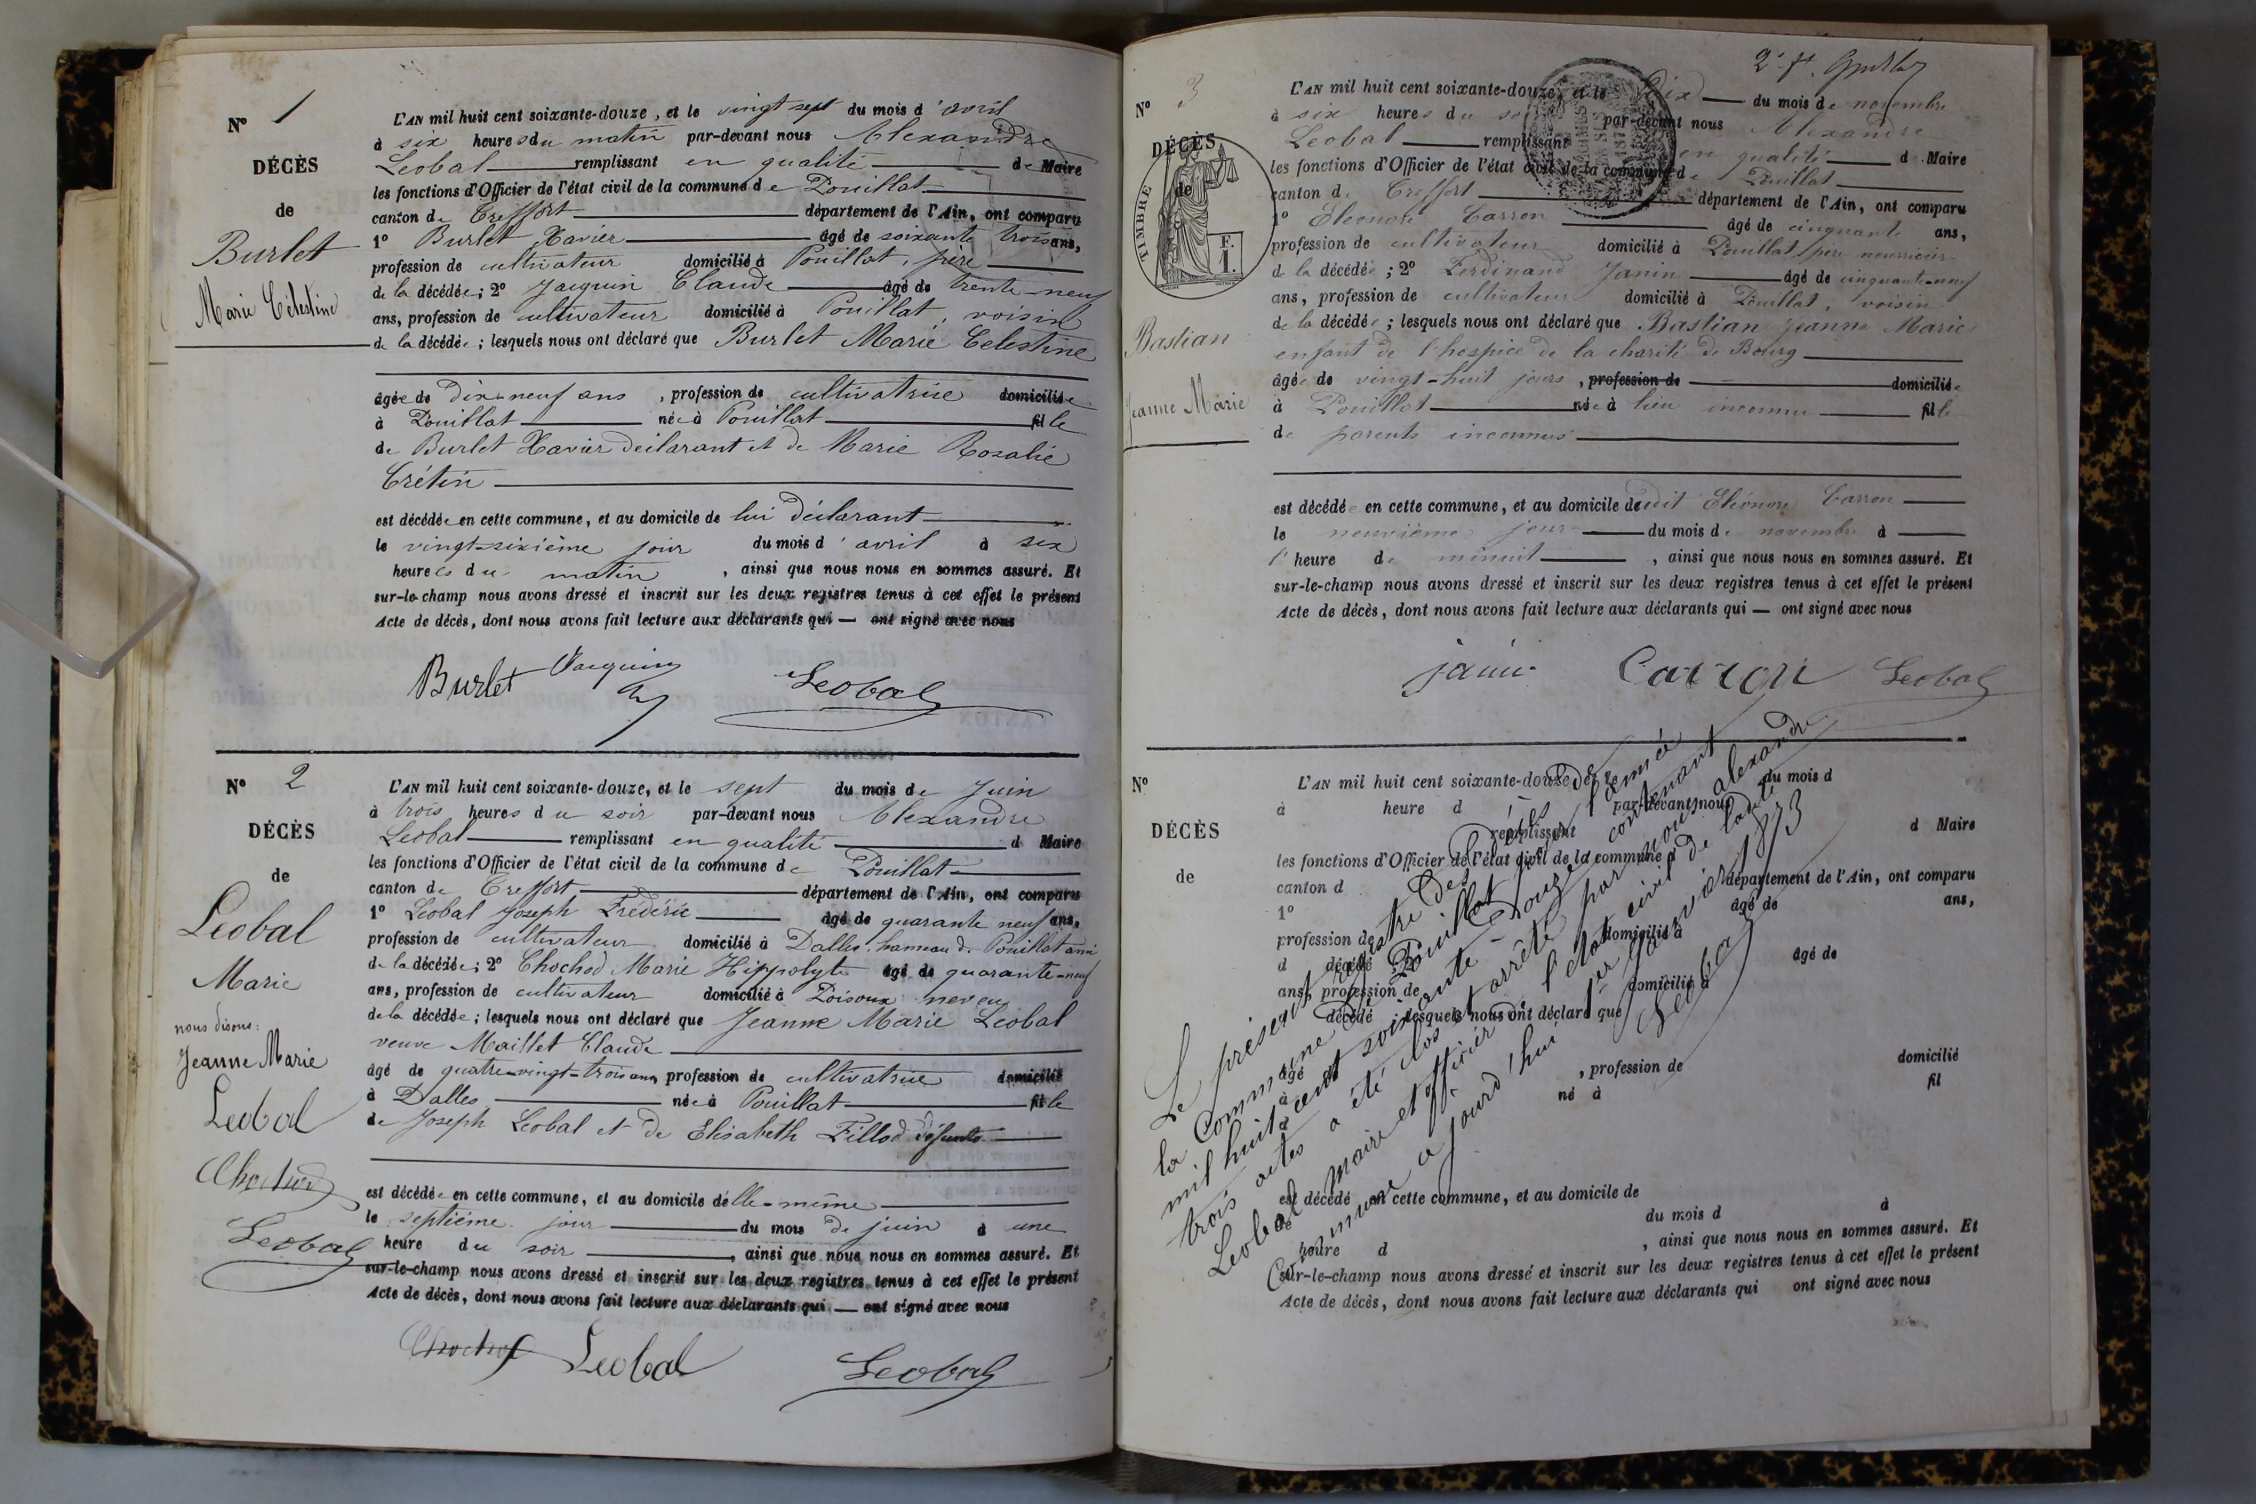 Nº 1
DÉCÈS
de
Burlet
Marie Célestine
L'AN mil huit cent soixante-douze, et le vingt sept du mois d'avril
à six heures du matin par-devant nous Alexandre
Leobal remplissant en qualité de Maire
les fonctions d'Officier de l'état civil de la commune de Pouillat
canton de Treffort département de l'Ain, ont comparu
1º Burlet Xavier âgé de soixante trois ans,
profession de cultivateur domicilié à Pouillat, père
de la décédée; 2º Jacquin Claude âgé de trente-neuf
ans, profession de cultivateur domicilié à Pouillat, voisin
de la décédée; lesquels nous ont déclaré que Burlet Marie Celestine
âgée de Dix-neuf ans, profession de cultivatrice domiciliée
à Pouillat née à Pouillat fille
de Burlet Xavier déclarant et de Marie Rosalie
Crétin
est décédée en cette commune, et au domicile de lui déclarant
le vingt-sixième jour du mois d'avril à six
heures du matin, ainsi que nous nous en sommes assuré. Et
sur-le-champ nous avons dressé et inscrit sur les deux registres tenus à cet effet le présent
Acte de décès, dont nous avons fait lecture aux déclarants qui — ont signé avec nous
Burlet Jacquin Leobal
Nº 2
DÉCÈS
de
Leobal
Marie
nous disons:
Jeanne Marie
Leobal
Chochod
Leobal
L'AN mil huit cent soixante-douze, et le sept du mois de Juin
à trois heures du soir par-devant nous Alexandre
Leobal remplissant en qualité d Maire
les fonctions d'Officier de l'état civil de la commune de Pouillat
canton de Treffort département de l'Ain, ont comparu
1º Leobal Joseph Frédéric âgé de quarante neuf ans,
profession de cultivateur domicilié à Dalles hameau de Pouillat ami
de la décédée; 2º Chochod Marie Hippolyte âgé de quarante-neuf
ans, profession de cultivateur domicilié à Poisoux neveu
de la décédée; lesquels nous ont déclaré que Jeanne Marie Leobal
veuve Maillet Claude
âgé de quatre-vingt-trois ans profession de cultivatrice domicilié
à Dalles née à Pouillat fille
de Joseph Leobal et de Elisabeth Fillod défunts
est décédée en cette commune, et au domicile d'elle-même
le septième jour du mois de juin à une
heure du soir, ainsi que nous nous en sommes assuré. Et
sur-le-champ nous avons dressé et inscrit sur les deux registres tenus à cet effet le présent
Acte de décès, dont nous avons fait lecture aux déclarants qui — ont signé avec nous
Chochod Leobal Leobal
2e ft.
Nº 3
DÉCÈS
de
TIMBRE
F.
1.
Bastian
Jeanne Marie
L'AN mil huit cent soixante-douze, et le Dix du mois de novembre
à six heures du soir par-devant nous Alexandre
Leobal remplissant en qualité d Maire
les fonctions d'Officier de l'état civil de la commune de Pouillat
canton de Treffort département de l'Ain, ont comparu
1º Eléonore Carron âgé de cinquante ans,
profession de cultivateur domicilié à Pouillat père nourricier
de la décédée; 2º Ferdinand Janin âgé de cinquante-neuf
ans, profession de cultivateur domicilié à Pouillat, voisin
de la décédée; lesquels nous ont déclaré que Bastian Jeanne Marie
enfant de l'hospice de la charité de Bourg
âgée de vingt-huit jours, profession de domiciliée
à Pouillat née à lieu inconnu fille
de parents inconnus
est décédée en cette commune, et au domicile dudit Eléonore Carron
le neuvième jour du mois de novembre à
l'heure de minuit, ainsi que nous nous en sommes assuré. Et
sur-le-champ nous avons dressé et inscrit sur les deux registres tenus à cet effet le présent
Acte de décès, dont nous avons fait lecture aux déclarants qui — ont signé avec nous
janin Carron Leobal
Nº
DÉCÈS
de
L'AN mil huit cent soixante-douze, et le du mois d
à heure d par-devant nous
remplissant d Maire
les fonctions d'Officier de l'état civil de la commune d
canton d département de l'Ain, ont comparu
1º âgé de ans,
profession de domicilié à
d décédé; 2º âgé de
ans, profession de domicilié à
d décédé; lesquels nous ont déclaré que
âgé, profession de domicilié
à né à fil
de
est décédé en cette commune, et au domicile de
le du mois d à
heure d, ainsi que nous nous en sommes assuré. Et
sur-le-champ nous avons dressé et inscrit sur les deux registres tenus à cet effet le présent
Acte de décès, dont nous avons fait lecture aux déclarants qui ont signé avec nous
Le présent registre des Décès de
la Commune de Pouillat pour l'année
mil huit cent soixante-douze contenant
trois actes a été clos et arrêté par nous alexandre
Leobal maire et officier de l'état civil de ladite
Commune a jourd'hui 1er janvier 1873
Leobal